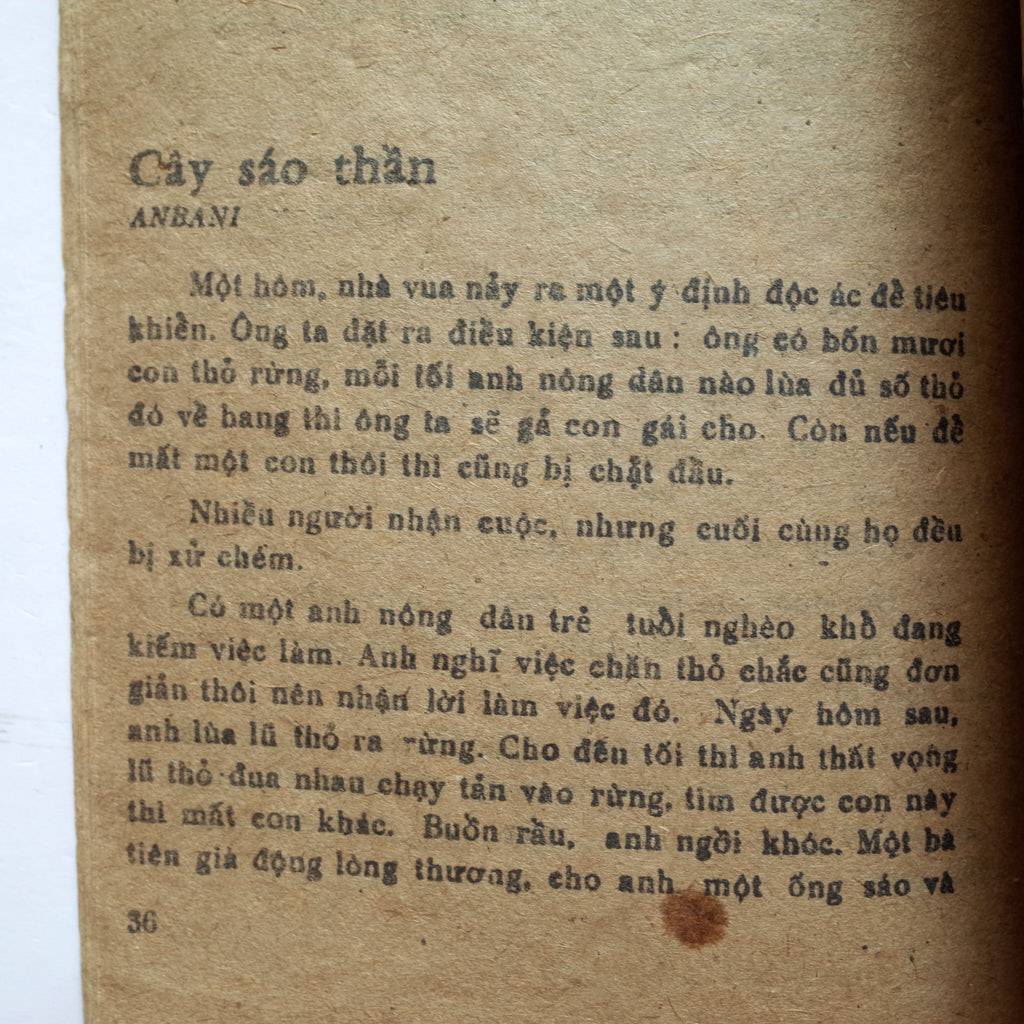 Cây sáo thần
ANBANI
Một hôm, nhà vua nảy ra một ý định độc ác để tiêu
khiển. Ông ta đặt ra điều kiện sau : ông có bốn mươi
con thỏ rừng, mỗi tối anh nông dân nào lùa đủ số thỏ
đó về hang thì ông ta sẽ gả con gái cho. Còn nếu để
mất một con thôi thì cũng bị chặt đầu.
Nhiều người nhận cuộc, nhưng cuối cùng họ đều
bị xử chém.
Có một anh nông dân trẻ tuổi nghèo khổ đang
kiếm việc làm. Anh nghĩ việc chăn thỏ chắc cũng đơn
giản thôi nên nhận lời làm việc đó. Ngày hôm sau,
anh lùa lũ thỏ ra rừng. Cho đến tối thì anh thất vọng
lũ thỏ đua nhau chạy tản vào rừng, tìm được con này
thì mất con khác. Buồn rầu, anh ngồi khóc. Một bà
tiên già động lòng thương, cho anh một ống sáo và
36